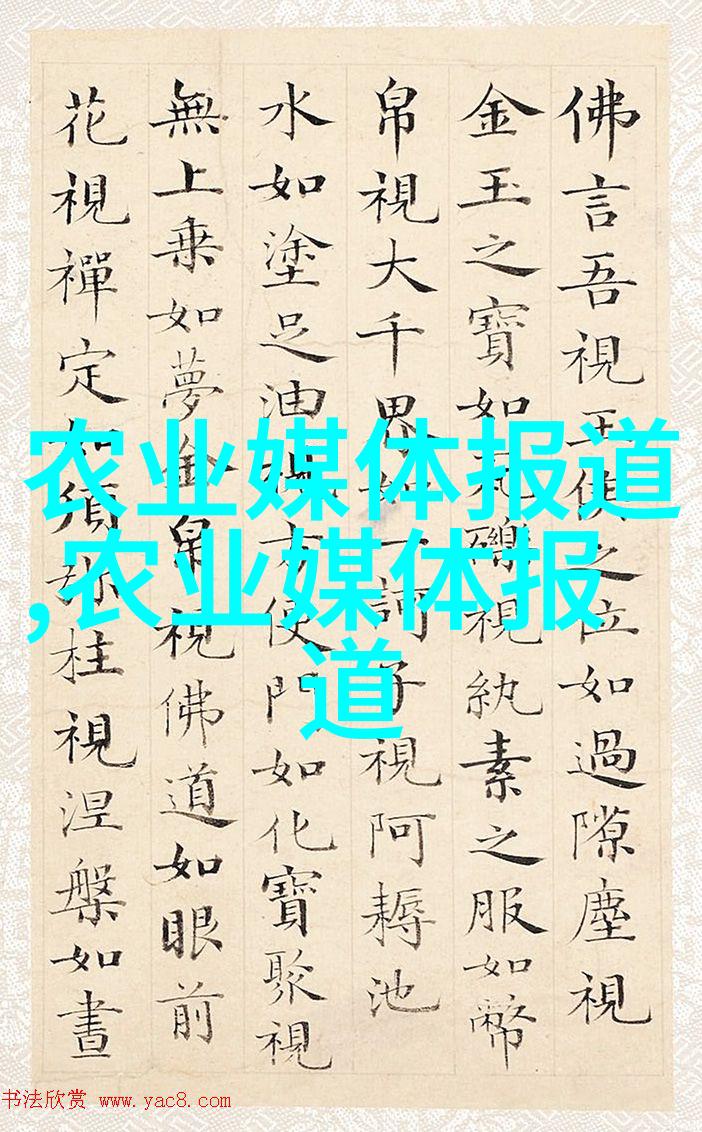 佛言吾視王侯之位如過隙塵視
金玉之寶如瓦礫視紈素之服如幣
帛視大千界如一訶子視阿耨池
水如塗足油視方便門如化寶聚視
無上乗如夢金帛視佛道如眼前
花視禪定如須弥柱視涅槃如晝
农业媒体报道
,农业媒体报
道
书法欣赏 www.yac8.com